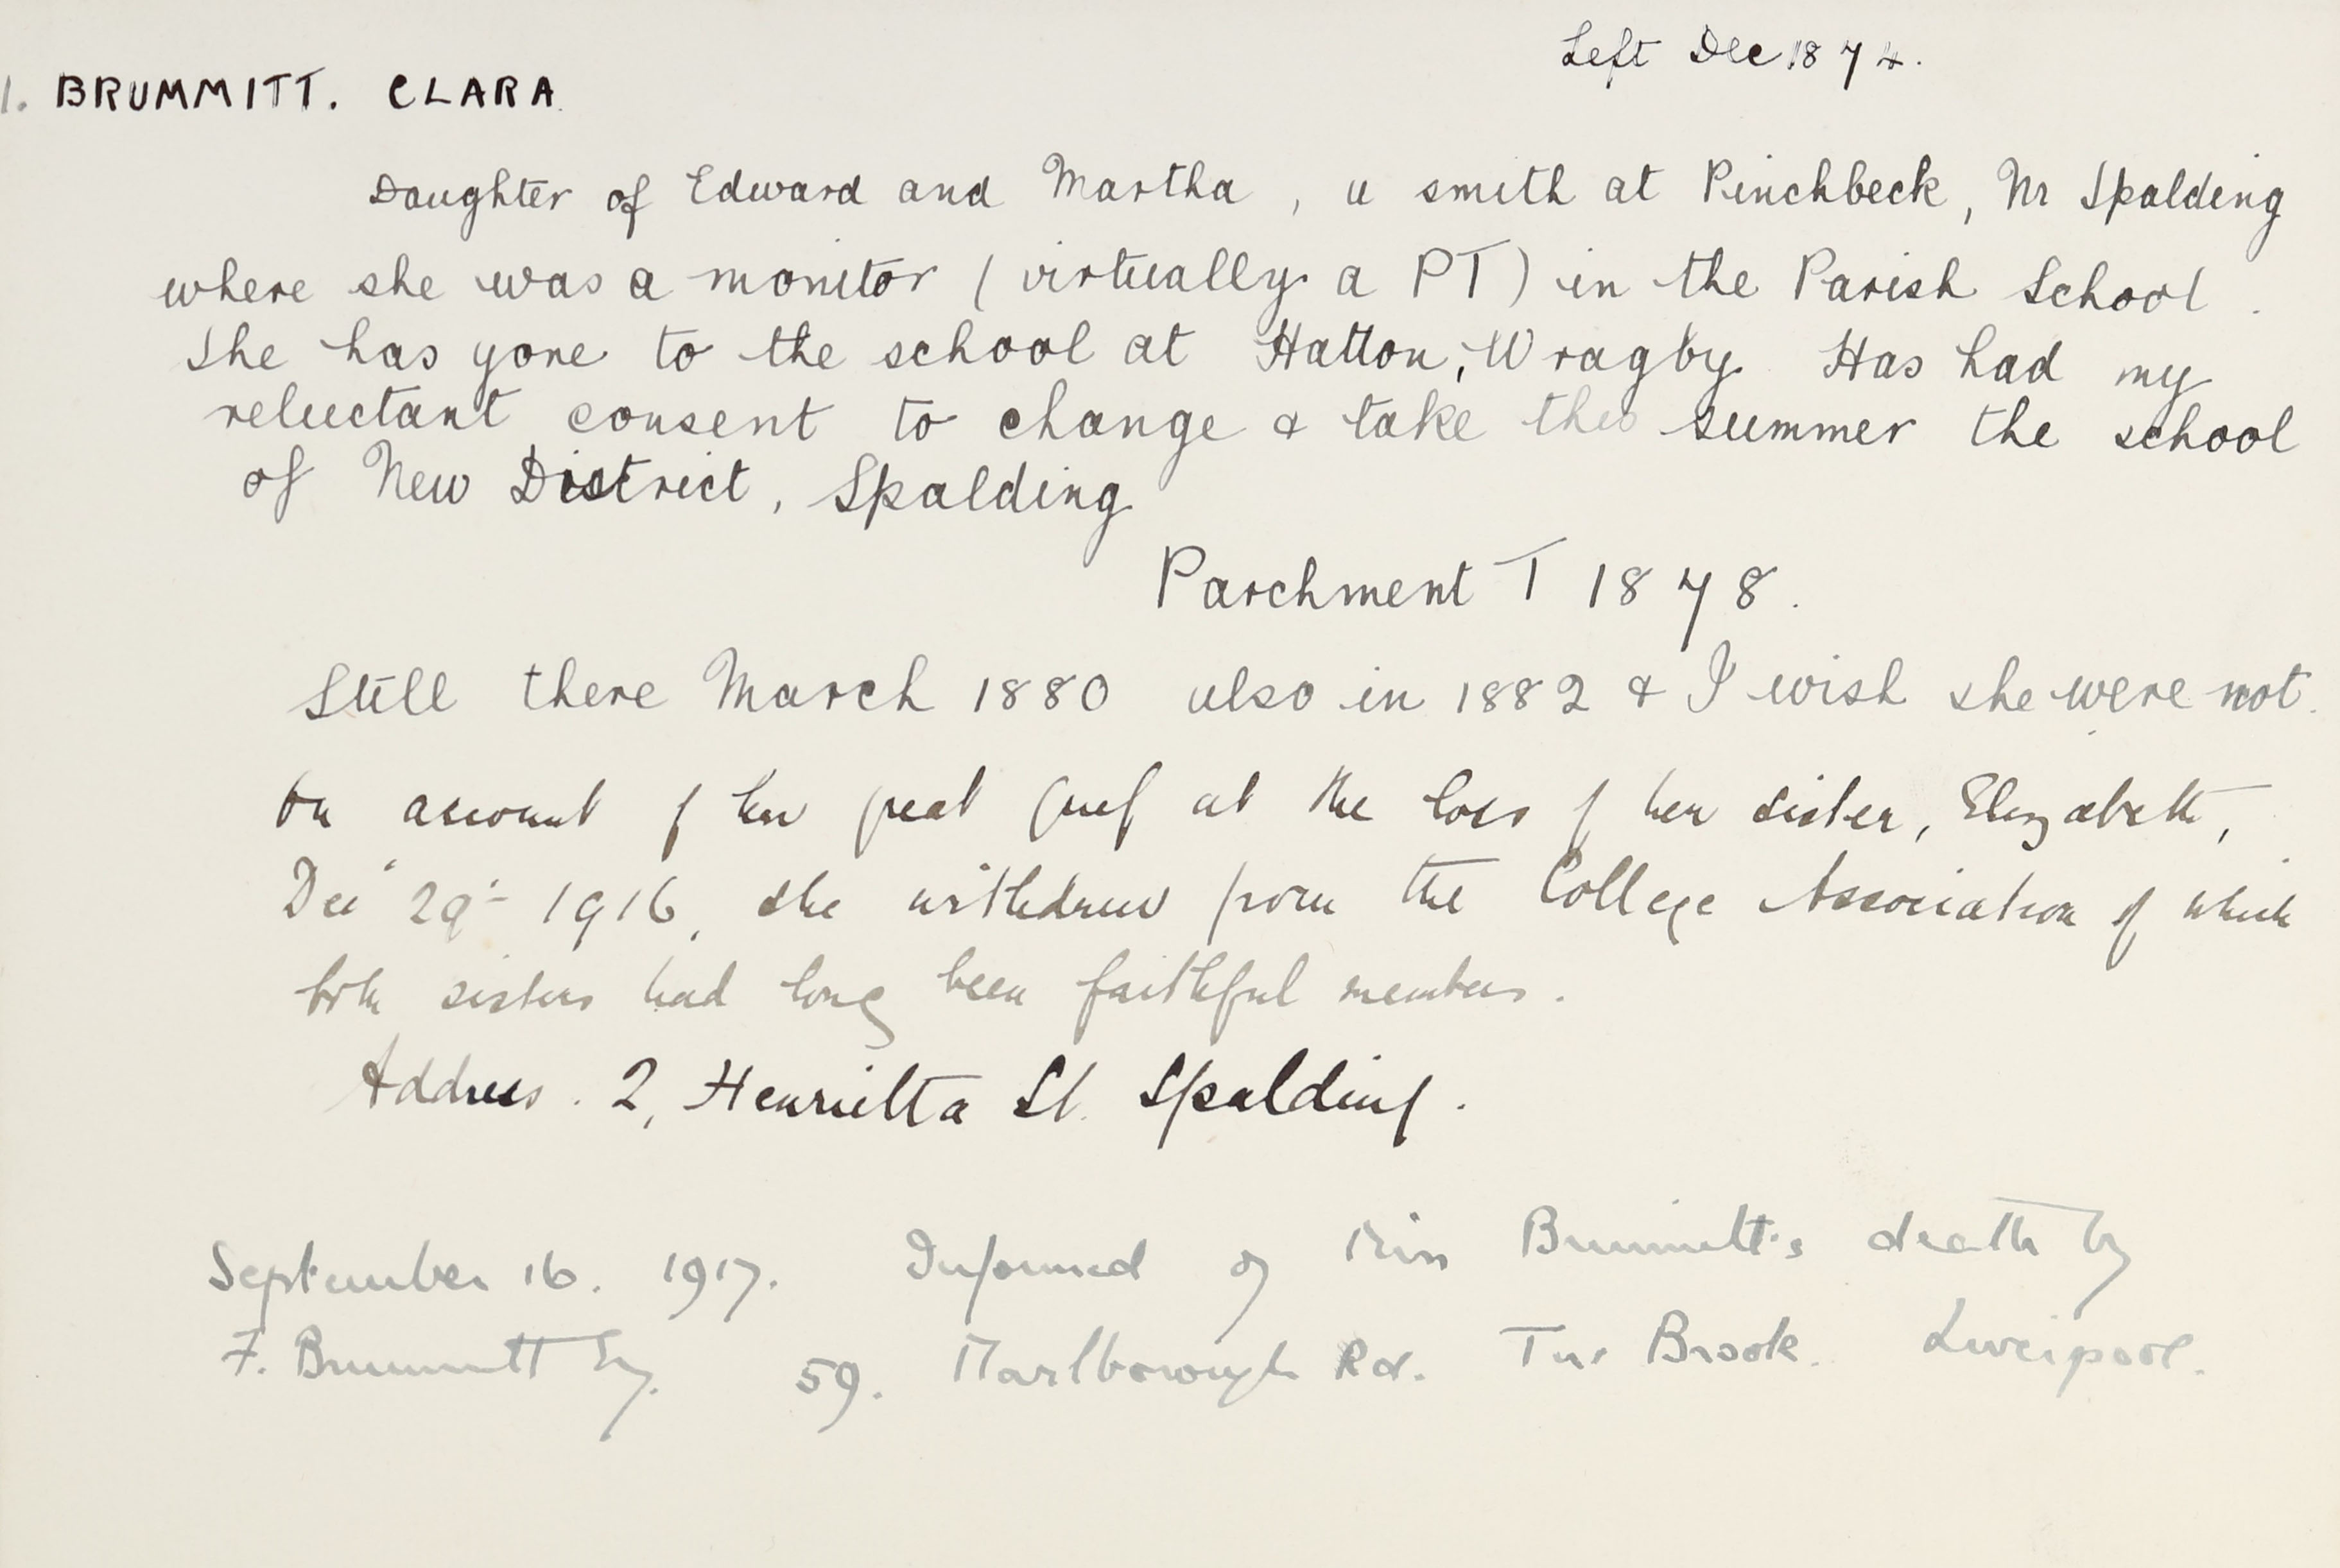 Left Dec 1874.
1. BRUMMITT. CLARA.
Daughter of Edward and Martha, a smith at Pinchbeck, Nr Spalding
where she was a monitor (virtually a PT) in the Parish School.
She has gone to the school at Hatton, Wragby. Has had my
reluctant consent to change & take this summer the school
of New District, Spalding
Parchment T 1878.
Still there March 1880 also in 1882 & I wish she were not.
On account of her great grief at the loss of her sister, Elizabeth,
Dec 29th 1916, she withdrew from the College Association of which
both sisters had long been faithful members.
Address. 2, Henrietta St. Spalding.
September 16. 1917. Informed of Miss Brummitt's death by
F. Brummitt Esq. 59. Marlborough Rd. Tue Brook. Liverpool.